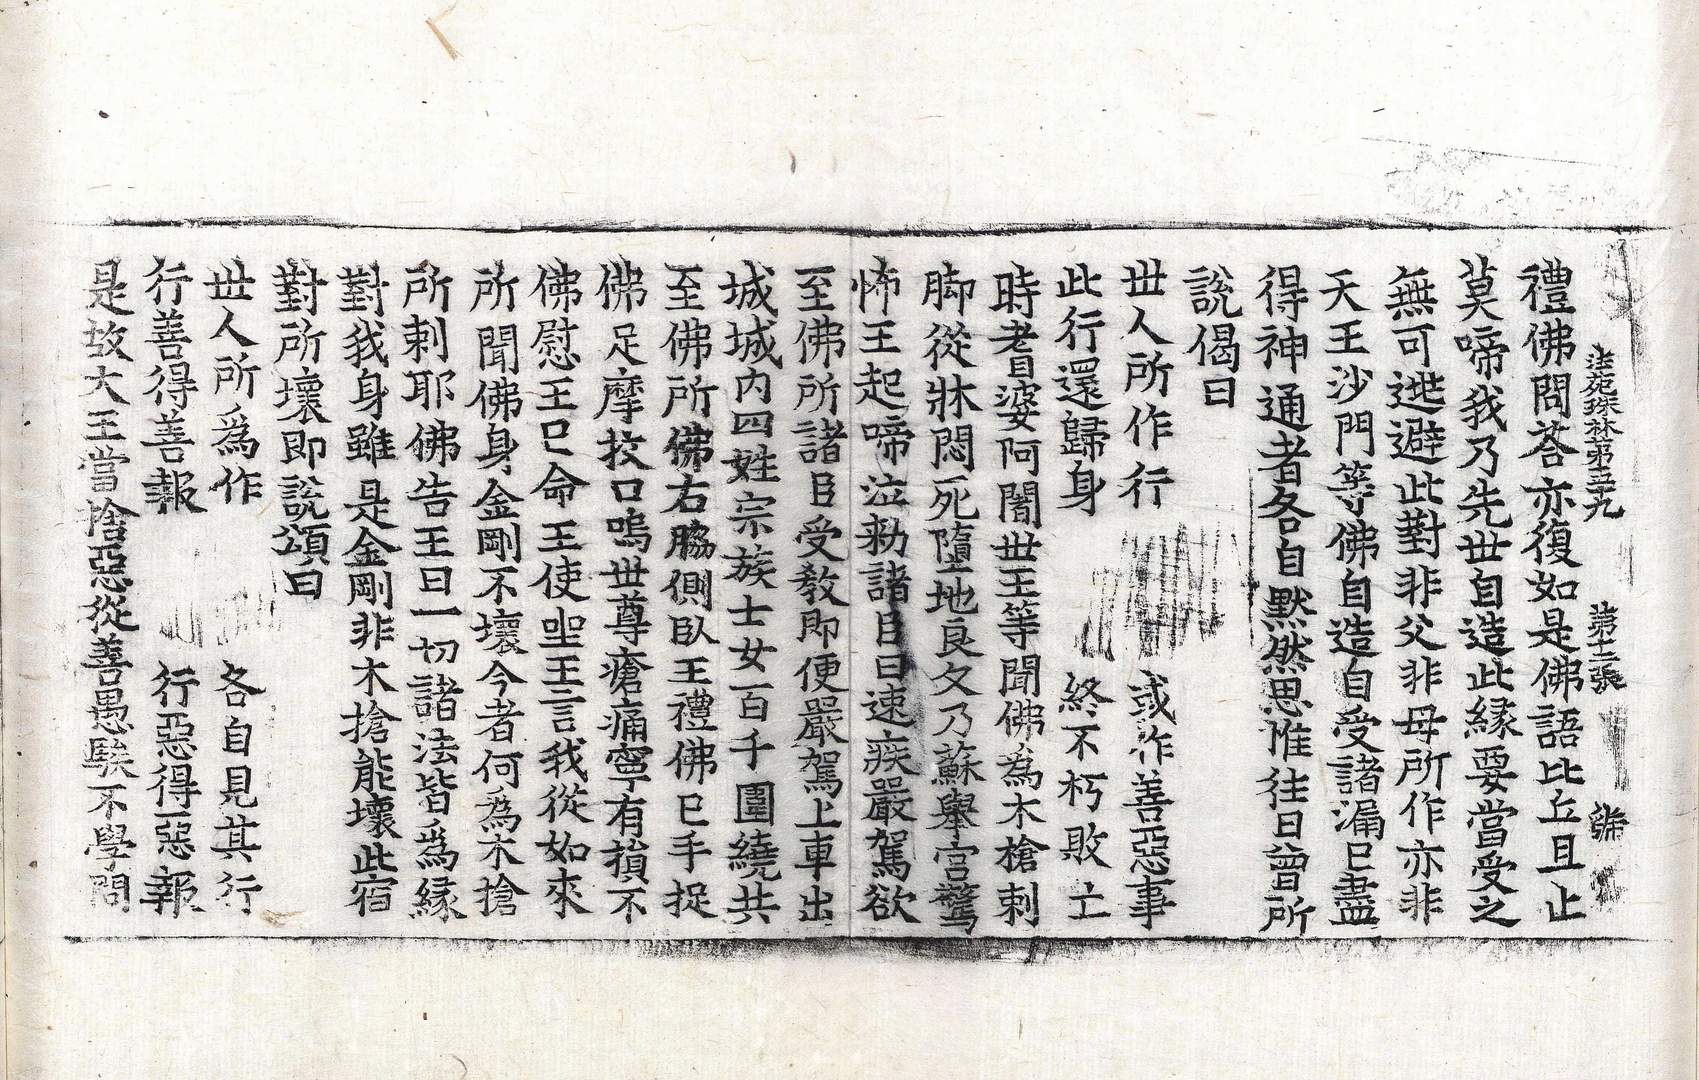 法苑珠林第五十九 第十二張 號
禮佛問荅亦復如是佛語比丘且止
莫啼我乃先世自造此緣要當受之
無可逃避此對非父非母所作亦非
天王沙門等佛自造自受諸漏已盡
得神通者各自默然思惟往日曾所
說偈曰
世人所作行 或作善惡事
此行還歸身 終不朽敗亡
時耆婆阿闍世王等聞佛爲木槍刺
脚從牀悶死墮地良久乃蘇舉宮驚
怖王起啼泣勑諸臣曰速疾嚴駕欲
至佛所諸臣受教即便嚴駕上車出
城城内四姓宗族士女一百千圍繞共
至佛所佛右脇側臥王禮佛已手捉
佛足摩抆口嗚世尊瘡痛寧有損不
佛慰王已命王使坐王言我從如來
所聞佛身金剛不壞今者何爲木搶
所刺耶佛告王曰一切諸法皆爲緣
對我身雖是金剛非木搶能壞此宿
對所壞即說頌曰
世人所爲作 各自見其行
行善得善報 行惡得惡報
是故大王當捨惡從善愚騃不學問